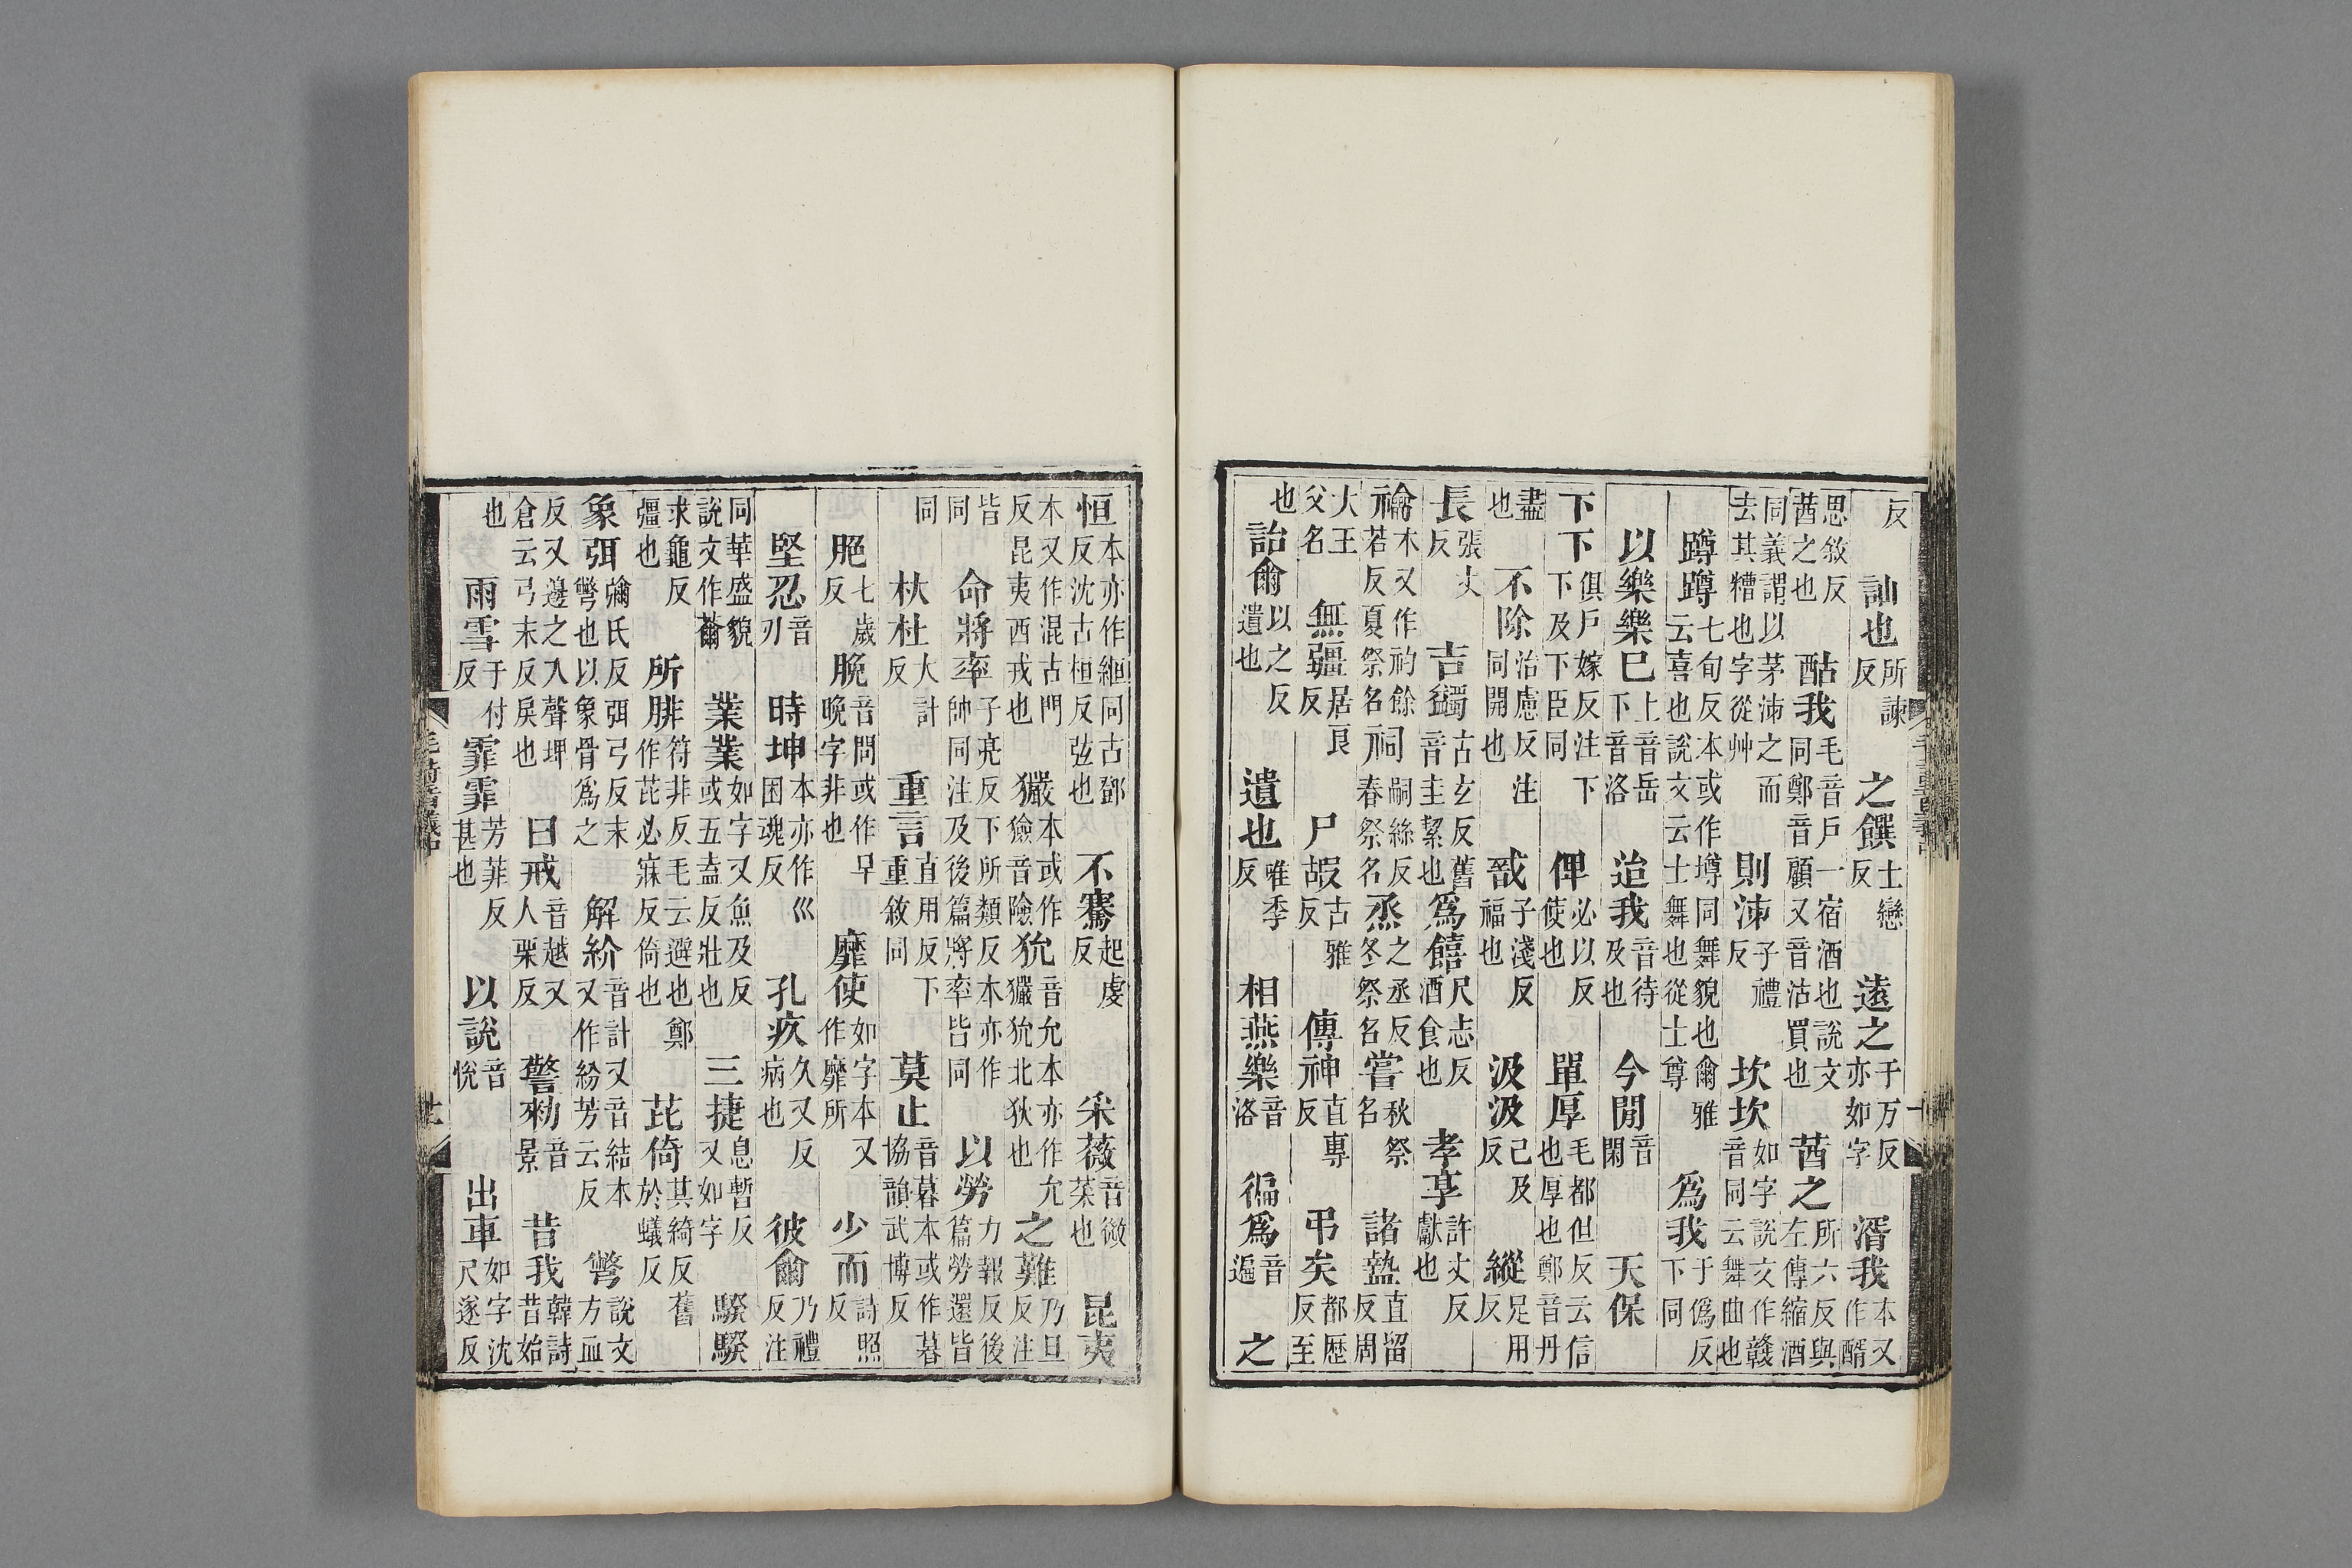 反訕也所諫反之饌士戀反遠之于万反亦如字湑我本又作醑
思敘反莤之也酤我毛音戶一宿酒也說文同鄭音顧又音沽買也莤之所六反與左傳縮酒
同義謂以茅泲之而去其糟也字從艸則泲子禮反坎坎如字說文作竷音同云舞曲也
蹲蹲七旬反本或作墫同舞貌也爾雅云喜也說文云士舞也從士尊爲我于僞反下同
以樂樂巳上音岳下音洛迨我音待及也今閒音閑天保
下下俱戶嫁反注下下及下臣同俾必以反使也單厚毛都但反云信也厚也鄭音丹
盡也不除治慮反注同開也戩子淺反福也汲汲己及反縱足用反
長張丈反吉蠲古玄反舊音圭絜也爲饎尺志反酒食也孝享許丈反獻也
禴本又作礿餘若反夏祭名祠嗣絲反春祭名烝之丞反冬祭名嘗秋祭名諸盩直留反周
大王父名無疆居良反尸嘏古雅反傳神直專反弔矣都歷反至
也詒爾以之反遺也遺也唯季反相燕樂音洛徧爲音遍之
恒本亦作縆同古鄧反沈古桓反弦也不騫起虔反采薇音微菜也昆夷
本又作混古門反昆夷西戎也玁本或作獫音險狁音允本亦作允玁狁北狄也之難乃旦反注
皆同命將率子亮反下所類反本亦作帥同注及後篇將率皆同以勞力報反後篇勞還皆
同杕杜大計反重言直用反下重敘同莫止音暮本或作暮協韻武博反
脃七歲反脕音問或作早晚字非也靡使如字本又作靡所少而詩照反
堅忍音刃時坤本亦作巛困魂反孔疚久又反病也彼爾乃禮反注
同華盛貌說文作薾業業如字又魚及反或五盍反壯也三捷息暫反又如字騤騤
求龜反彊也所腓符非反毛云避也鄭作芘必寐反倚也芘倚其綺反舊於蟻反
象弭彌氏反弭弓反末彆也以象骨爲之解紒音計又音結本又作紛芳云反彆說文方血
反又邊之入聲埤倉云弓末反戾也曰戒音越又人栗反警勑音景昔我韓詩昔始
也雨雪于付反霏霏芳菲反甚也以說音悅出車如字沈尺遂反
毛詩音義中